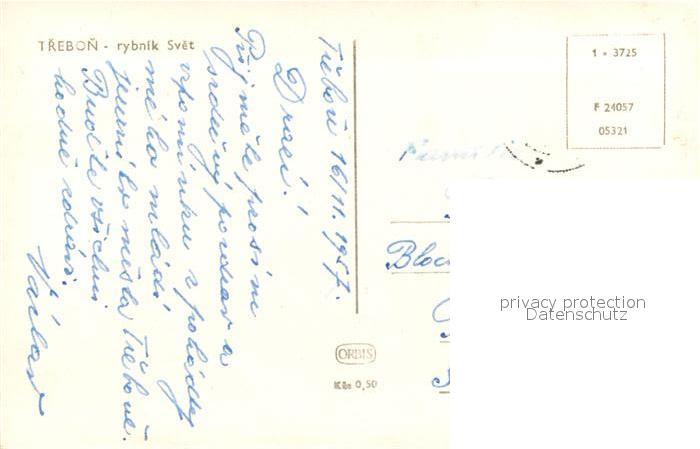 TŘEBOŇ - rybník Svět
Třeboň 16/11. 1957.
Drazí!
Přijměte prosím
srdečný pozdrav a
vzpomínku z pohádky
mého mládí,
jímž to města Třeboně.
Buďte všichni
hodně zdrávi.
Václav
1 - 3725
F 24057
05321
Bloc
ORBIS
Kčs 0,50
privacy protection
Datenschutz